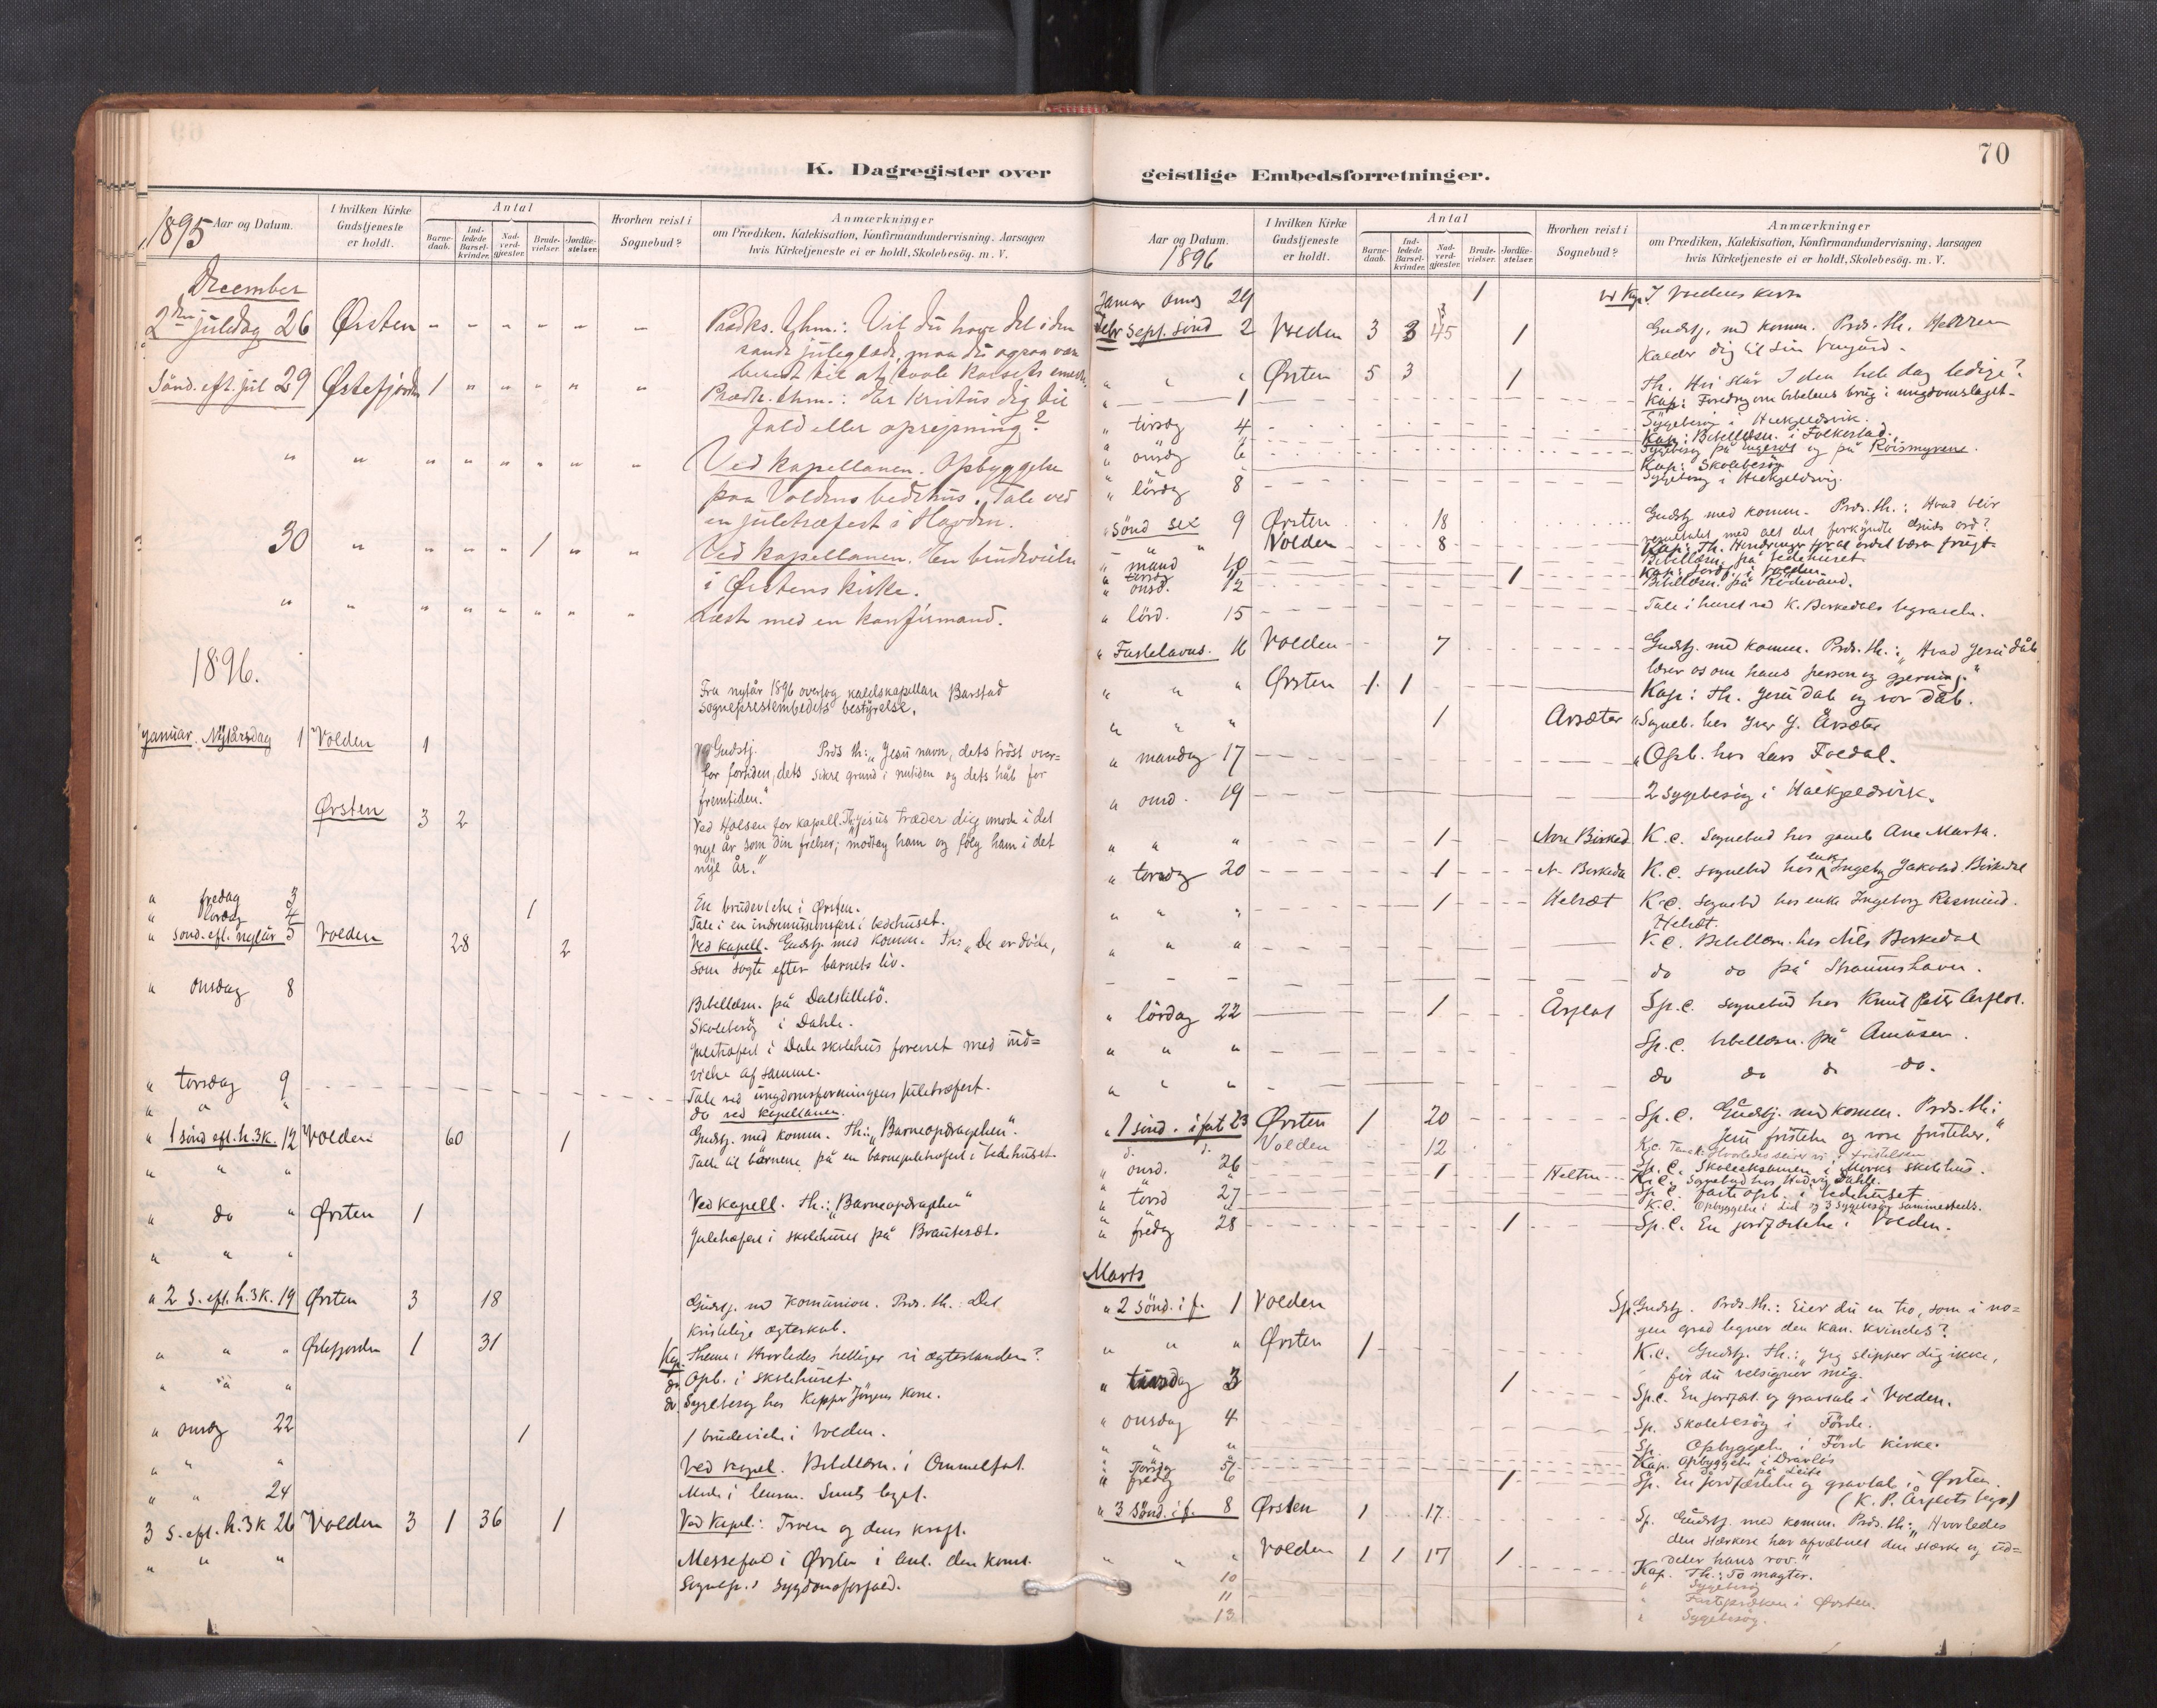 70
K. Dagregister over
geistlige Embedsforretninger.
1895
Aar og Datum.
I hvilken Kirke
Gudstjeneste
er holdt.
Antal
Barne-
daab.
Ind-
ledede
Barsel-
kvinder.
Nad-
verd-
gjæster.
Brude-
vielser.
Jordfæ-
stelser.
Hvorhen reist i
Sognebud?
Anmærkninger
om Prædiken, Katekisation, Konfirmandundervisning. Aarsagen
hvis Kirketjeneste ei er holdt, Skolebesög. m. V.
December
2den juledag 26 Ørsten " " " " " " Prædks. thm.: Vil du have del i den
sande juleglæde, maa du ogsaa være
beredt til at taale Korsets
Sönd. eft. jul 29 Østefjorden 1 " " " " " Prædk. thm.: Har Kristus dig til
fald eller opreisning?
" " " " " " " " Ved Kapellanen. Opbyggelse
paa Voldens bedehus. Tale ved
en juletræfest i Hovden.
30 " " " " 1 " " Ved Kapellanen. En brudevielse
i Ørstens kirke.
" " " " " " " " Læst med en konfirmand.
1896.
Fra nytår 1896 overtog kaldskapellan Barstad
sogneprestembedets bestyrelse.
Januar. Nytårsdag 1 Volden 1 Gudstj. Præd. th.: "Jesu navn, dets tröst over-
for fortiden, dets sikre grund i nutiden og dets håb for
fremtiden."
Ørsten 3 2 Ved Holsen for kapell. Th: "Jesus træder dig imöde i det
nye år som din frelser; modtag ham og fölg ham i det
nye år."
" fredag 3 1 En brudevielse i Ørsten.
" lördag 4 Tale i en indremissionsfest i bedehuset.
" sönd. eft. nytår 5 Volden 28 2 Ved kapell. Gudstj. med komm. Th: "De er döde,
som sögte efter barnets liv.
" Onsdag 8 Bibellæsn. på Dalstillelö.
Skolebesög i Dahle.
Juletræfest i Dale skolehus forenet med ind=
vielse af samme.
" Torsdag 9 Tale ved ungdomsforeningens juletræfest.
" " " do ved kapellanen.
" 1 sönd eft. h. 3 K. 12 Volden 60 1 Gudstj. med komm. Th.: "Barneopdragelsen".
" " " Tale til börnene på en barnejuletræfest i bedehuset.
" do " Ørsten 1 Ved kapell. Th.: "Barneopdragelsen"
" " " Juletræfest i skolehuset på Brautesæt.
" 2 S. eft. h. 3 K. 19 Ørsten 3 18 Gudstj. med Komunion. Præd. th.: Det
kristelige ægteskab.
" " " Østefjorden 1 31 Kap. Thema: Hvorledes helliger vi ægtestanden?
" " " do. Opb. i skolehuset.
do. Sygebesög hos Kipper Jörgens kone.
" onsdg 22 1 1 brudevielse i Volden.
" " " Ved kapel. Bibellæsn. i Ommelfot.
" " 24 Möde i lensm. Sunts laget.
3 S. eft. h. 3 K 26 Volden 3 1 36 1 Ved Kapel.: Troen og dens kraft.
" " " Messefald i Ørsten i anl. den konst.
Sognepr.s sygdomsforfald.
Aar og Datum.
1896
I hvilken Kirke
Gudstjeneste
er holdt.
Antal
Barne-
daab.
Ind-
ledede
Barsel-
kvinder.
Nad-
verd-
gjæster.
Brude-
vielser.
Jordfæ-
stelser.
Hvorhen reist i
Sognebud?
Anmærkninger
om Prædiken, Katekisation, Konfirmandundervisning. Aarsagen
hvis Kirketjeneste ei er holdt, Skolebesög. m. V.
Januar Onsd 29 1 Kap. I Voldens kirke
Febr Sept. sönd 2 Volden 3 3 45 1 Gudstj. med komm. Præd. th. Herren
kalder dig til sin vingård.
" " " Ørsten 5 3 1 Th. Hvi står I den hele dag ledige?
" 1 Kap: Foredrag om bibelens brug i ungdomslaget.
" tirsdg 4 Sygebesög i Hækjeldsvik.
Kap: Bibellæsn. i Folkestad.
" onsdg 6 Sygebesög på og på Roismyrene.
Kap: Skolebesög
" lördg 8 Sygebesög i Hækjeldsvig.
" Sönd sex 9 Ørsten 18 Gudstj med komm. Præd. th.: Hvad blir
resultatet med alt det forkyndte Guds ord?
" " Volden 8 Kap: Th. Hindringer for at ordet bærer frugt.
" mand 10 Bibellæsn. på bedehuset.
" tirsdg 11 1 Kap: Jordf. i Volden.
" onsd. 12 Bibellæsn. på Rödevand.
" lörd. 15 Tale i huset ved K. Birkedals begravelse.
" Fastelavns. 16 Volden 7 Gudstj. med komm. Præd. th.: "Hvad Jesu dåb
lærer os om hans person og gjerning."
" " " Ørsten 1 1 Kap: Th. Jesu dåb og vor dåb.
" " " 1 Årsæter " Sogneb. hos Iver J. Årsæter
" mandag 17 " Opb. hos Lars Foldal.
" onsd. 19 2 sygebesög i Hækjeldsvik.
" " " 1 Nore Birked. K.c. Sognebud hos gamle Ane Marta.
" torsdg 20 1 N. Birkeda K.c. sognebud hos enke Ingeb. Jakobsd. Birkedal
" " " 1 Helsæt K.c. sognebd hos enke Ingeborg Rasmusd.
Helsæt.
" " " K.c. Bibellæsn. hos Nils Birkedal
- - - do do på Straumshavn.
" lördag 22 1 Årflot Sp.c. sognebud hos Knut Petter Årflot.
" " " Sp.c. bibellæsn. på Åmåsen.
" " " do do do do.
" 1 sönd. i fast 23 Ørsten 1 20 Sp.c. Gudstj. med komm. Præd. th:
"Jesu fristelse og vore fristelser."
d. d. Volden 12 K.c. Tema: Hvorledes seirer vi i fristelsen
" onsd. 26 Sp.c. Skoleeksamen i Mörks skolehus.
" " " 1 Heltne K.c. Sognebud hos Hedvig Dahle.
" torsd 27 Sp.c. fasteopb. i bedehuset
" " " K.c. Opbyggelse i Lid og 3 Sygebesög sammesteds.
" fredg 28 1 Sp.c. En jordfæstelse i Volden.
Marts
" 2 Sönd. i f. 1 Volden Sp. Gudstj. Præd. th.: Eier du en tro, som i no=
gen grad ligner den kan. kvindes?
" " " Ørsten 1 K.c. Gudstj. Th.: "Jeg slipper dig ikke,
för du velsigner mig.
" tirsdag 3 1 Sp.c. En jordfæst. og gravtale i Volden.
" onsdag 4 Sp. Skolebesög i Förde.
" " " Sp. Opbyggelse i Förde kirke.
" Torsdg 5 Kap. Opbyggelse i Dravlös
" " på Leite
" fredg 6 1 Sp. En jordfæstelse og gravtale i Ørsten
(K. P. Årflots begr)
" 3 Sönd. i f. 8 Ørsten 1 17 Sp. Gudstj. med komm. Præd. th: "Hvorledes
den stærkere har afvæbnet den stærke og ud=
deler hans rov."
" " " Volden 1 1 17 1 Kap. Th.: To magter.
10 " Sygebesög
11 " Fasteprædiken i Ørsten.
13 " Sygebesög.